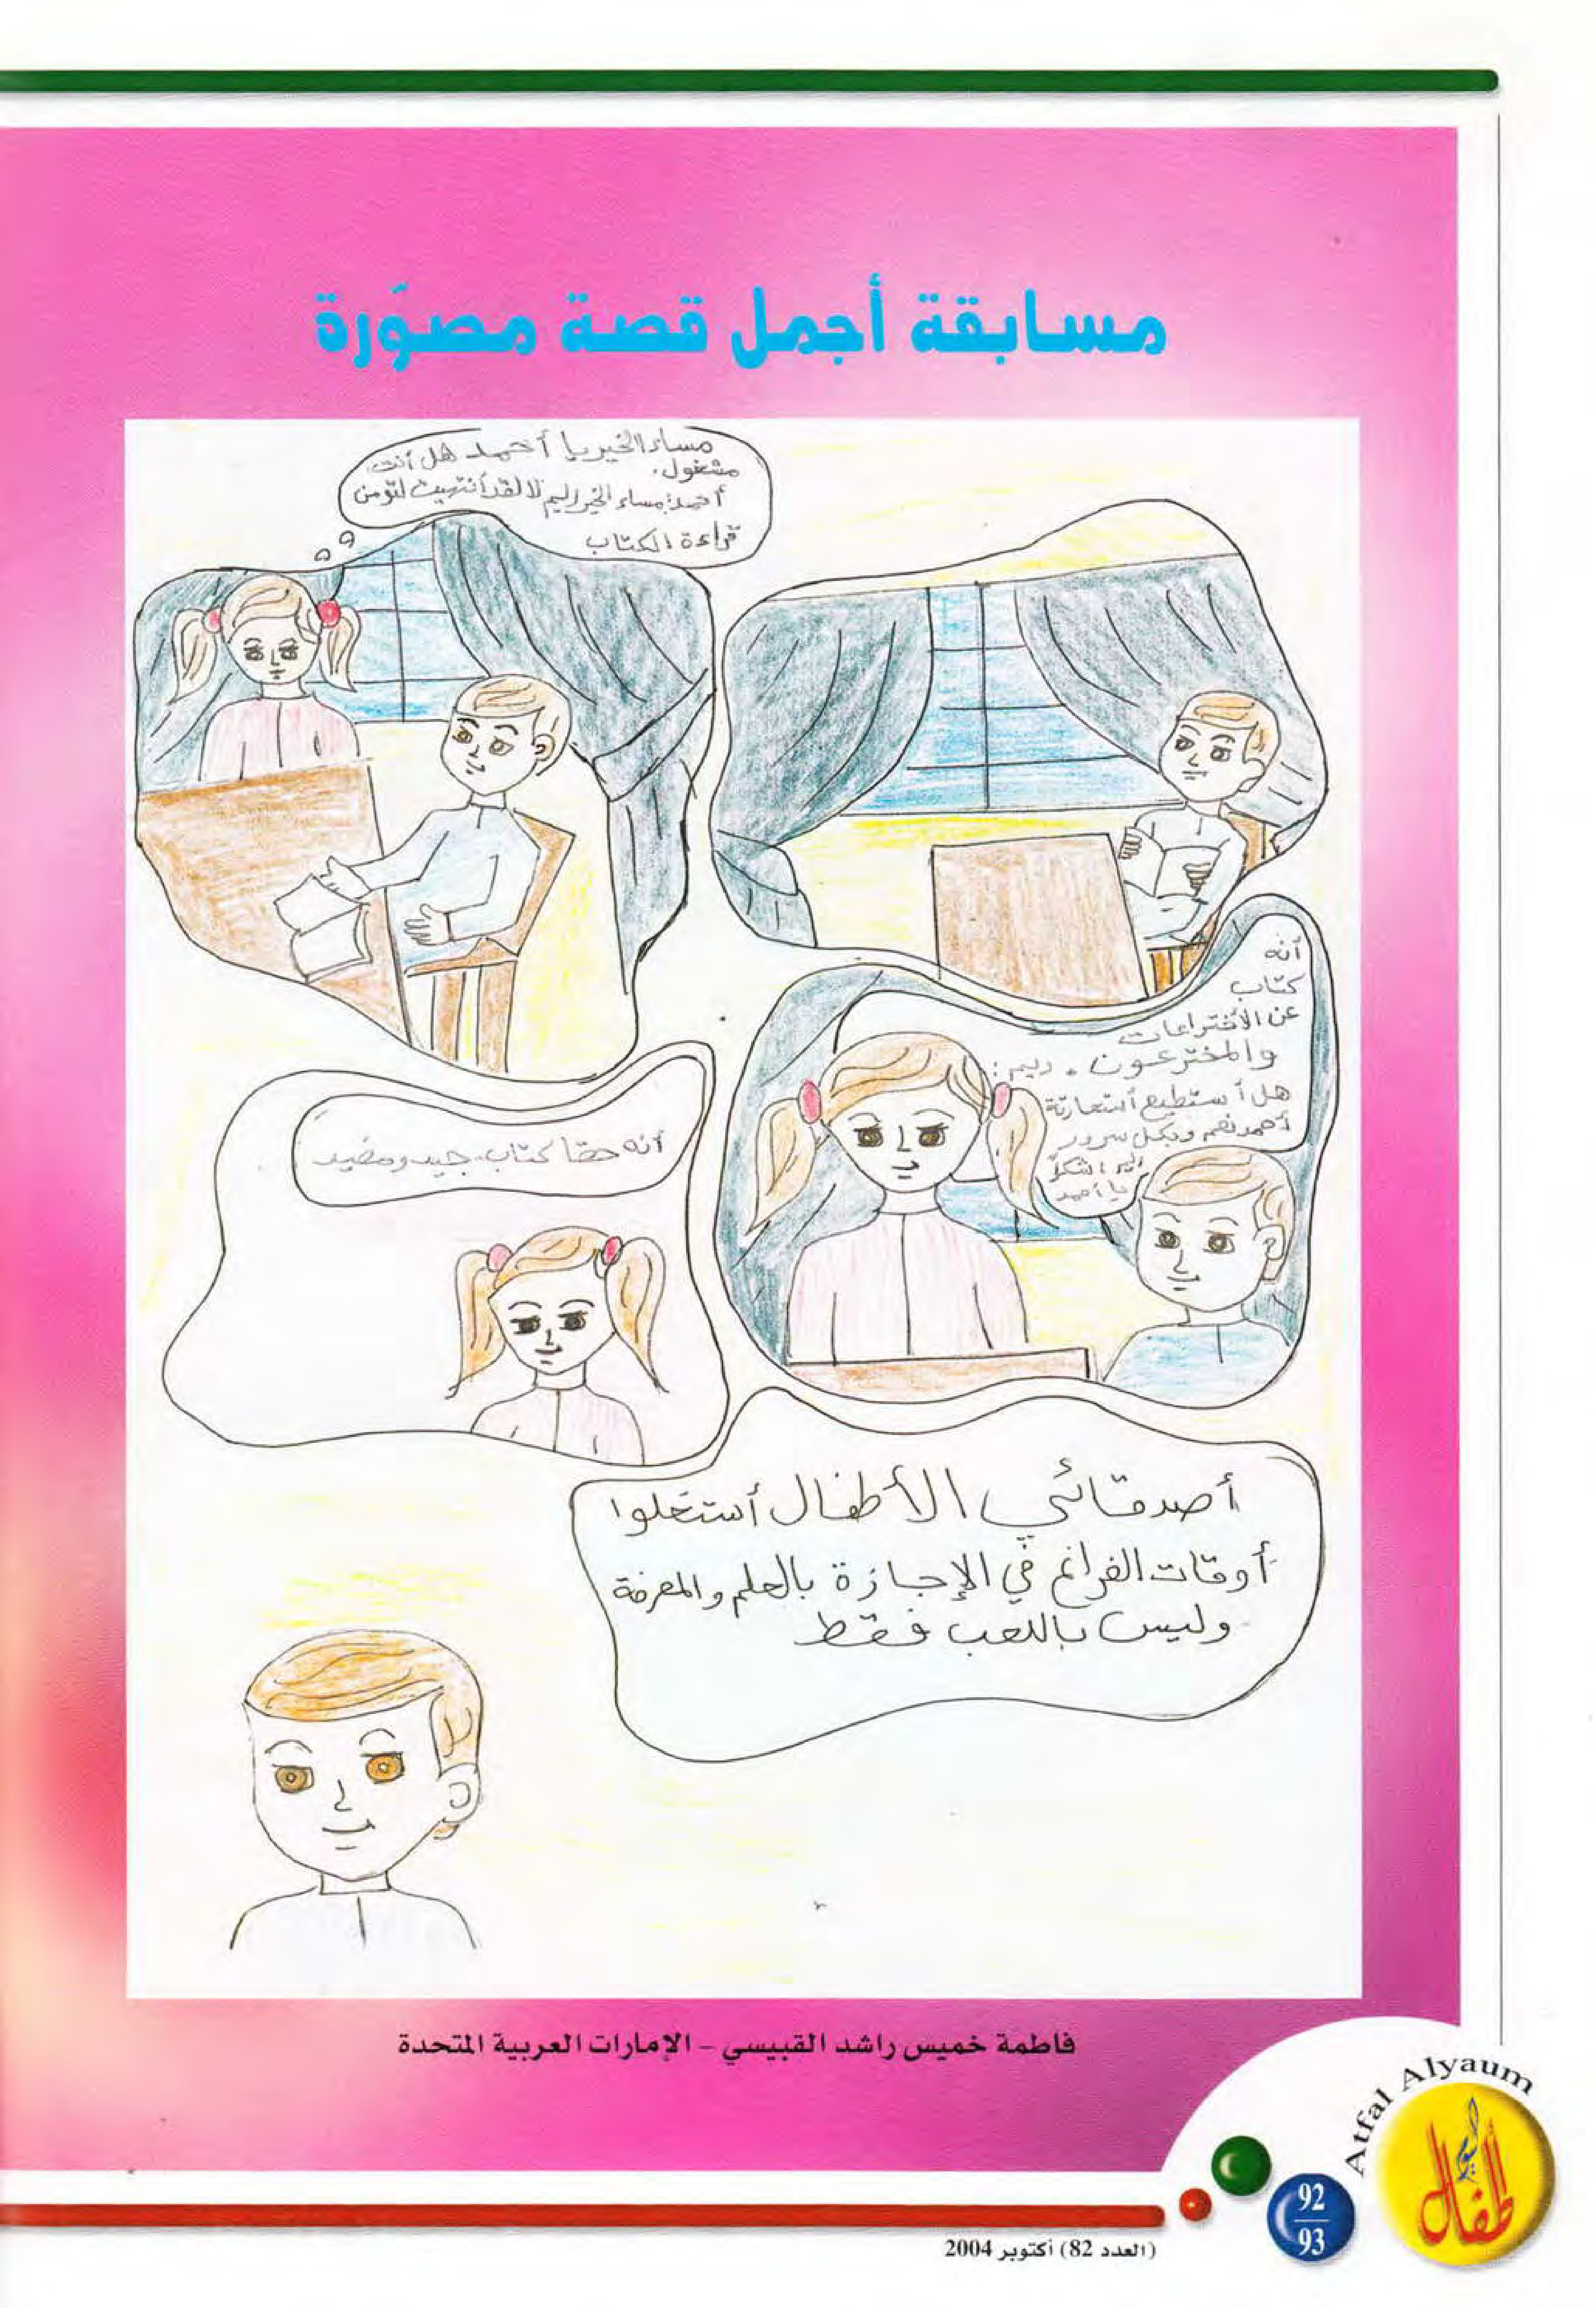 مسابقة أجمل قصة مصوّرة
مساء الخير يا أحمد هل أنت
مشغول.
أحمد: مساء الخير ريم لا لقد أنتهيت لتو من
قراءة الكتاب
أنه
كتاب
عن الأختراعات
والمخترعون. ريم:
هل أستطيع أستعارتة
أحمد نعم وبكل سرور
شكراً
يا أحمد
أنه حقا كتاب جيد ومفيد
أصدقائي الأطفال أستغلوا
أوقات الفراغ في الإجازة بالعلم والمعرفة
وليس باللعب فقط
فاطمة خميس راشد القبيسي - الإمارات العربية المتحدة
Atfal Alyaum
أطفال اليوم
92
93
(العدد 82) أكتوبر 2004